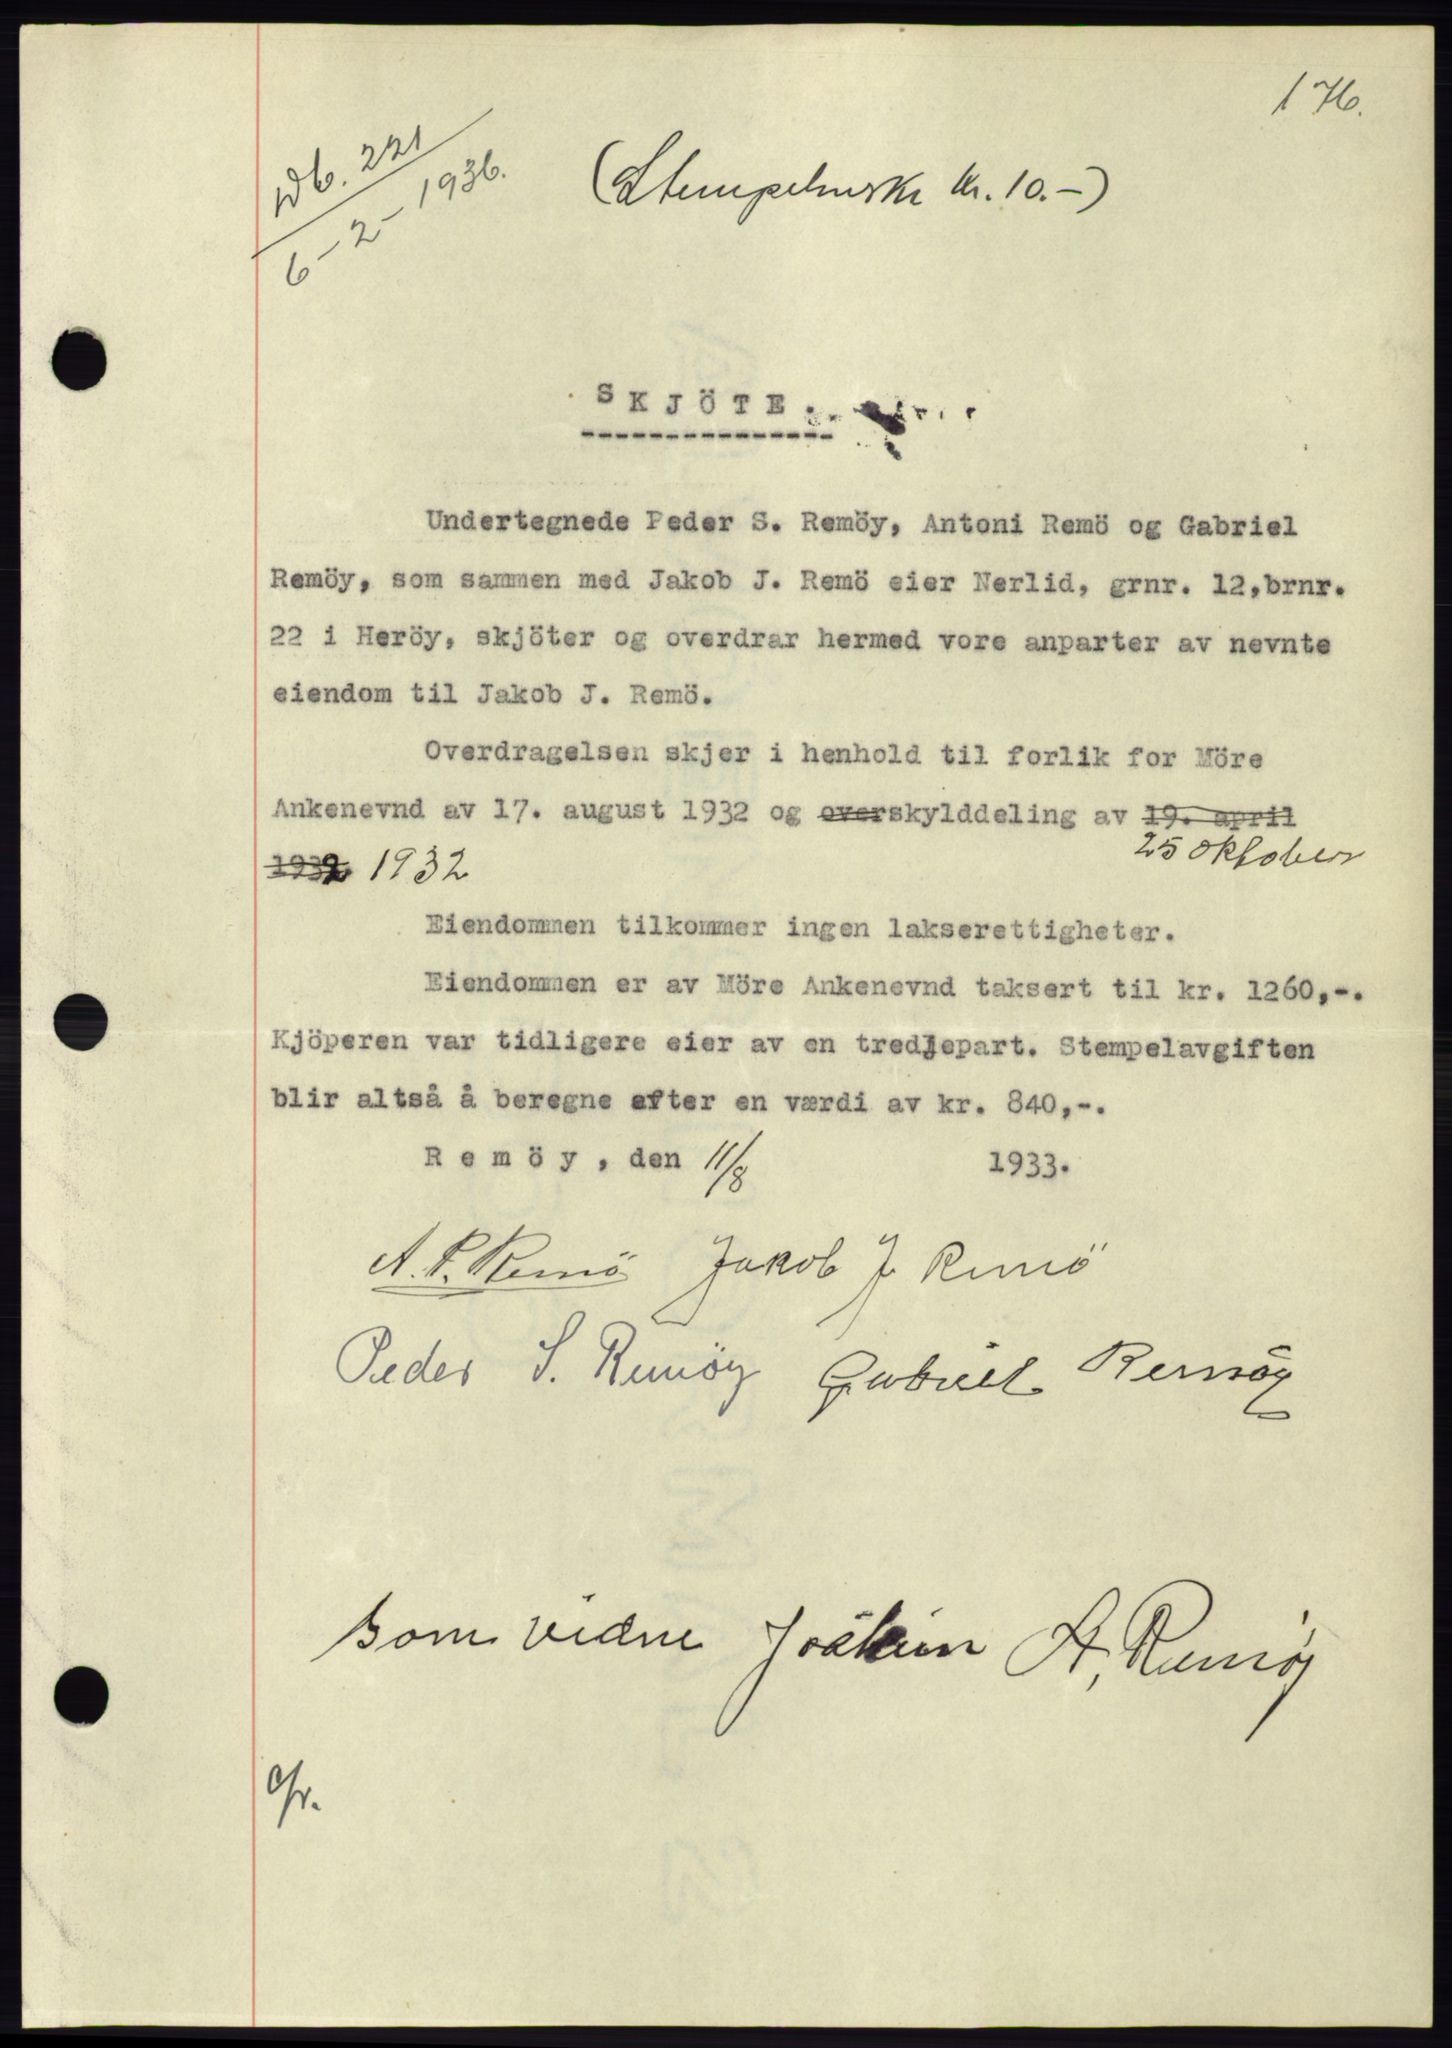 176.
Db. 221
6-2-1936.
(Stempelmerke kr. 10.-)
SKJÖTE.
Undertegnede Peder S. Remöy, Antoni Remö og Gabriel
Remöy, som sammen med Jakob J. Remö eier Nerlid, grnr. 12,brnr.
22 i Heröy, skjöter og overdrar hermed vore anparter av nevnte
eiendom til Jakob J. Remö.
Overdragelsen skjer i henhold til forlik for Möre
Ankenevnd av 17. august 1932 og overskylddeling av 19. april
25 oktober
1932 1932
Eiendommen tilkommer ingen lakserettigheter.
Eiendommen er av Möre Ankenevnd taksert til kr. 1260,-.
Kjöperen var tidligere eier av en tredjepart. Stempelavgiften
blir altså å beregne efter en værdi av kr. 840,-.
Remöy, den 11/8 1933.
A. P. Remö Jakob J Remö
Peder S. Remöy Gabriel Remöy
som vidne Joakim A, Remöy